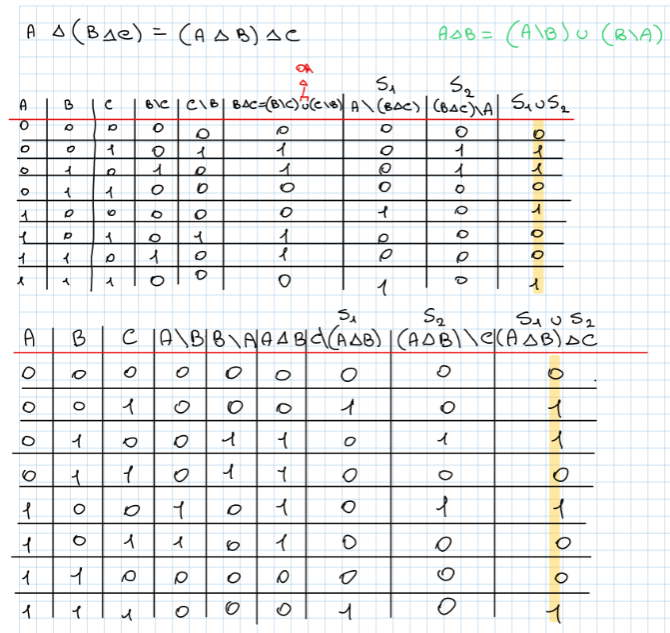 A Δ (B Δ C) = (A Δ B) Δ C
AΔB = (A\B) ∪ (B\A)
OR
S₁ S₂
A B C B\C C\B BΔC=(B\C)∪(C\B) A\(BΔC) (BΔC)\A S₁∪S₂
0 0 0 0 0 0 0 0 0
0 0 1 0 1 1 0 1 1
0 1 0 1 0 1 0 1 1
0 1 1 0 0 0 0 0 0
1 0 0 0 0 0 1 0 1
1 0 1 0 1 1 0 0 0
1 1 0 1 0 1 0 0 0
1 1 1 0 0 0 1 0 1
S₁ S₂ S₁ ∪ S₂
A B C A\B B\A AΔB C\(AΔB) (AΔB)\C (AΔB)ΔC
0 0 0 0 0 0 0 0 0
0 0 1 0 0 0 1 0 1
0 1 0 0 1 1 0 1 1
0 1 1 0 1 1 0 0 0
1 0 0 1 0 1 0 1 1
1 0 1 1 0 1 0 0 0
1 1 0 0 0 0 0 0 0
1 1 1 0 0 0 1 0 1